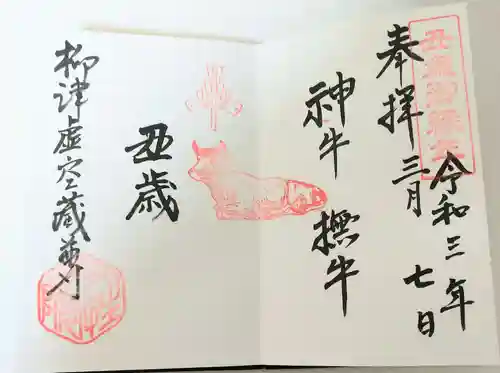 奉拝
令和三年
三月
七日
神牛
撫牛
丑歳
柳津虚空蔵尊